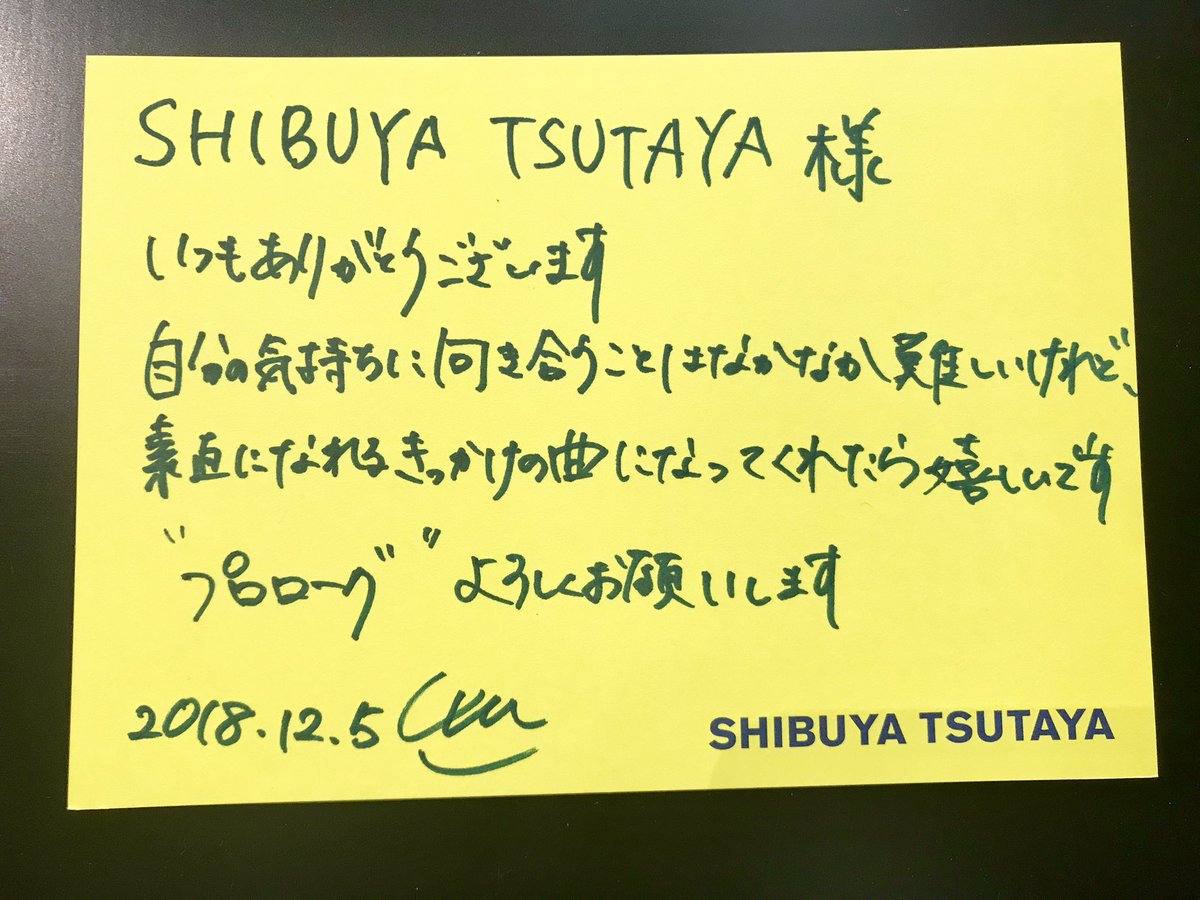 SHIBUYA TSUTAYA 様
いつもありがとうございます
自分の気持ちに向き合うことはなかなか難しいけれど、
素直になれるきっかけの曲になってくれたら嬉しいです
"プロローグ" よろしくお願いします
2018.12.5
SHIBUYA TSUTAYA